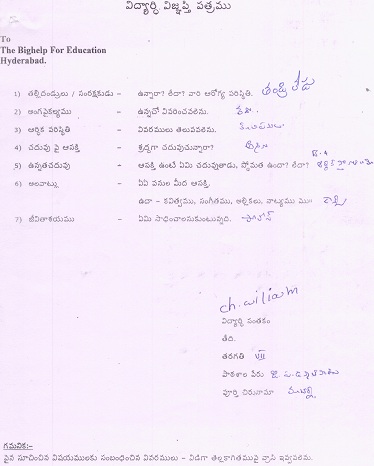 విద్యార్ధి విజ్ఞప్తి పత్రము
To
The Bighelp For Education
Hyderabad.
1) తల్లిదండ్రులు / సంరక్షకుడు - ఉన్నారా? లేదా? వారి ఆరోగ్య పరిస్థితి. తండ్రి లేడు
2) అంగవైకల్యము - ఉన్నచో వివరించవలెను. లేదు.
3) ఆర్ధిక పరిస్థితి - వివరములు తెలుపవలెను.
4) చదువు పై ఆసక్తి - శ్రద్ధగా చదువుచున్నారా?
5) ఉన్నతచదువు - ఆసక్తి ఉంటే ఏమి చదువుతాడు, స్తోమత ఉందా? లేదా?
6) అలవాట్లు - ఏఏ పనుల మీద ఆసక్తి.
ఉదా - కవిత్వము, సంగీతము, అల్లికలు, నాట్యము ము॥
7) జీవితాశయము - ఏమి సాధించాలనుకుంటున్నది.
ch. wiliam
విద్యార్ధి సంతకం
తేది.
తరగతి VII
పాఠశాల పేరు
పూర్తి చిరునామా
గమనిక:-
పైన సూచించిన విషయములకు సంబంధించిన వివరములు - విడిగా తెల్లకాగితముపై వ్రాసి ఇవ్వవలెను.